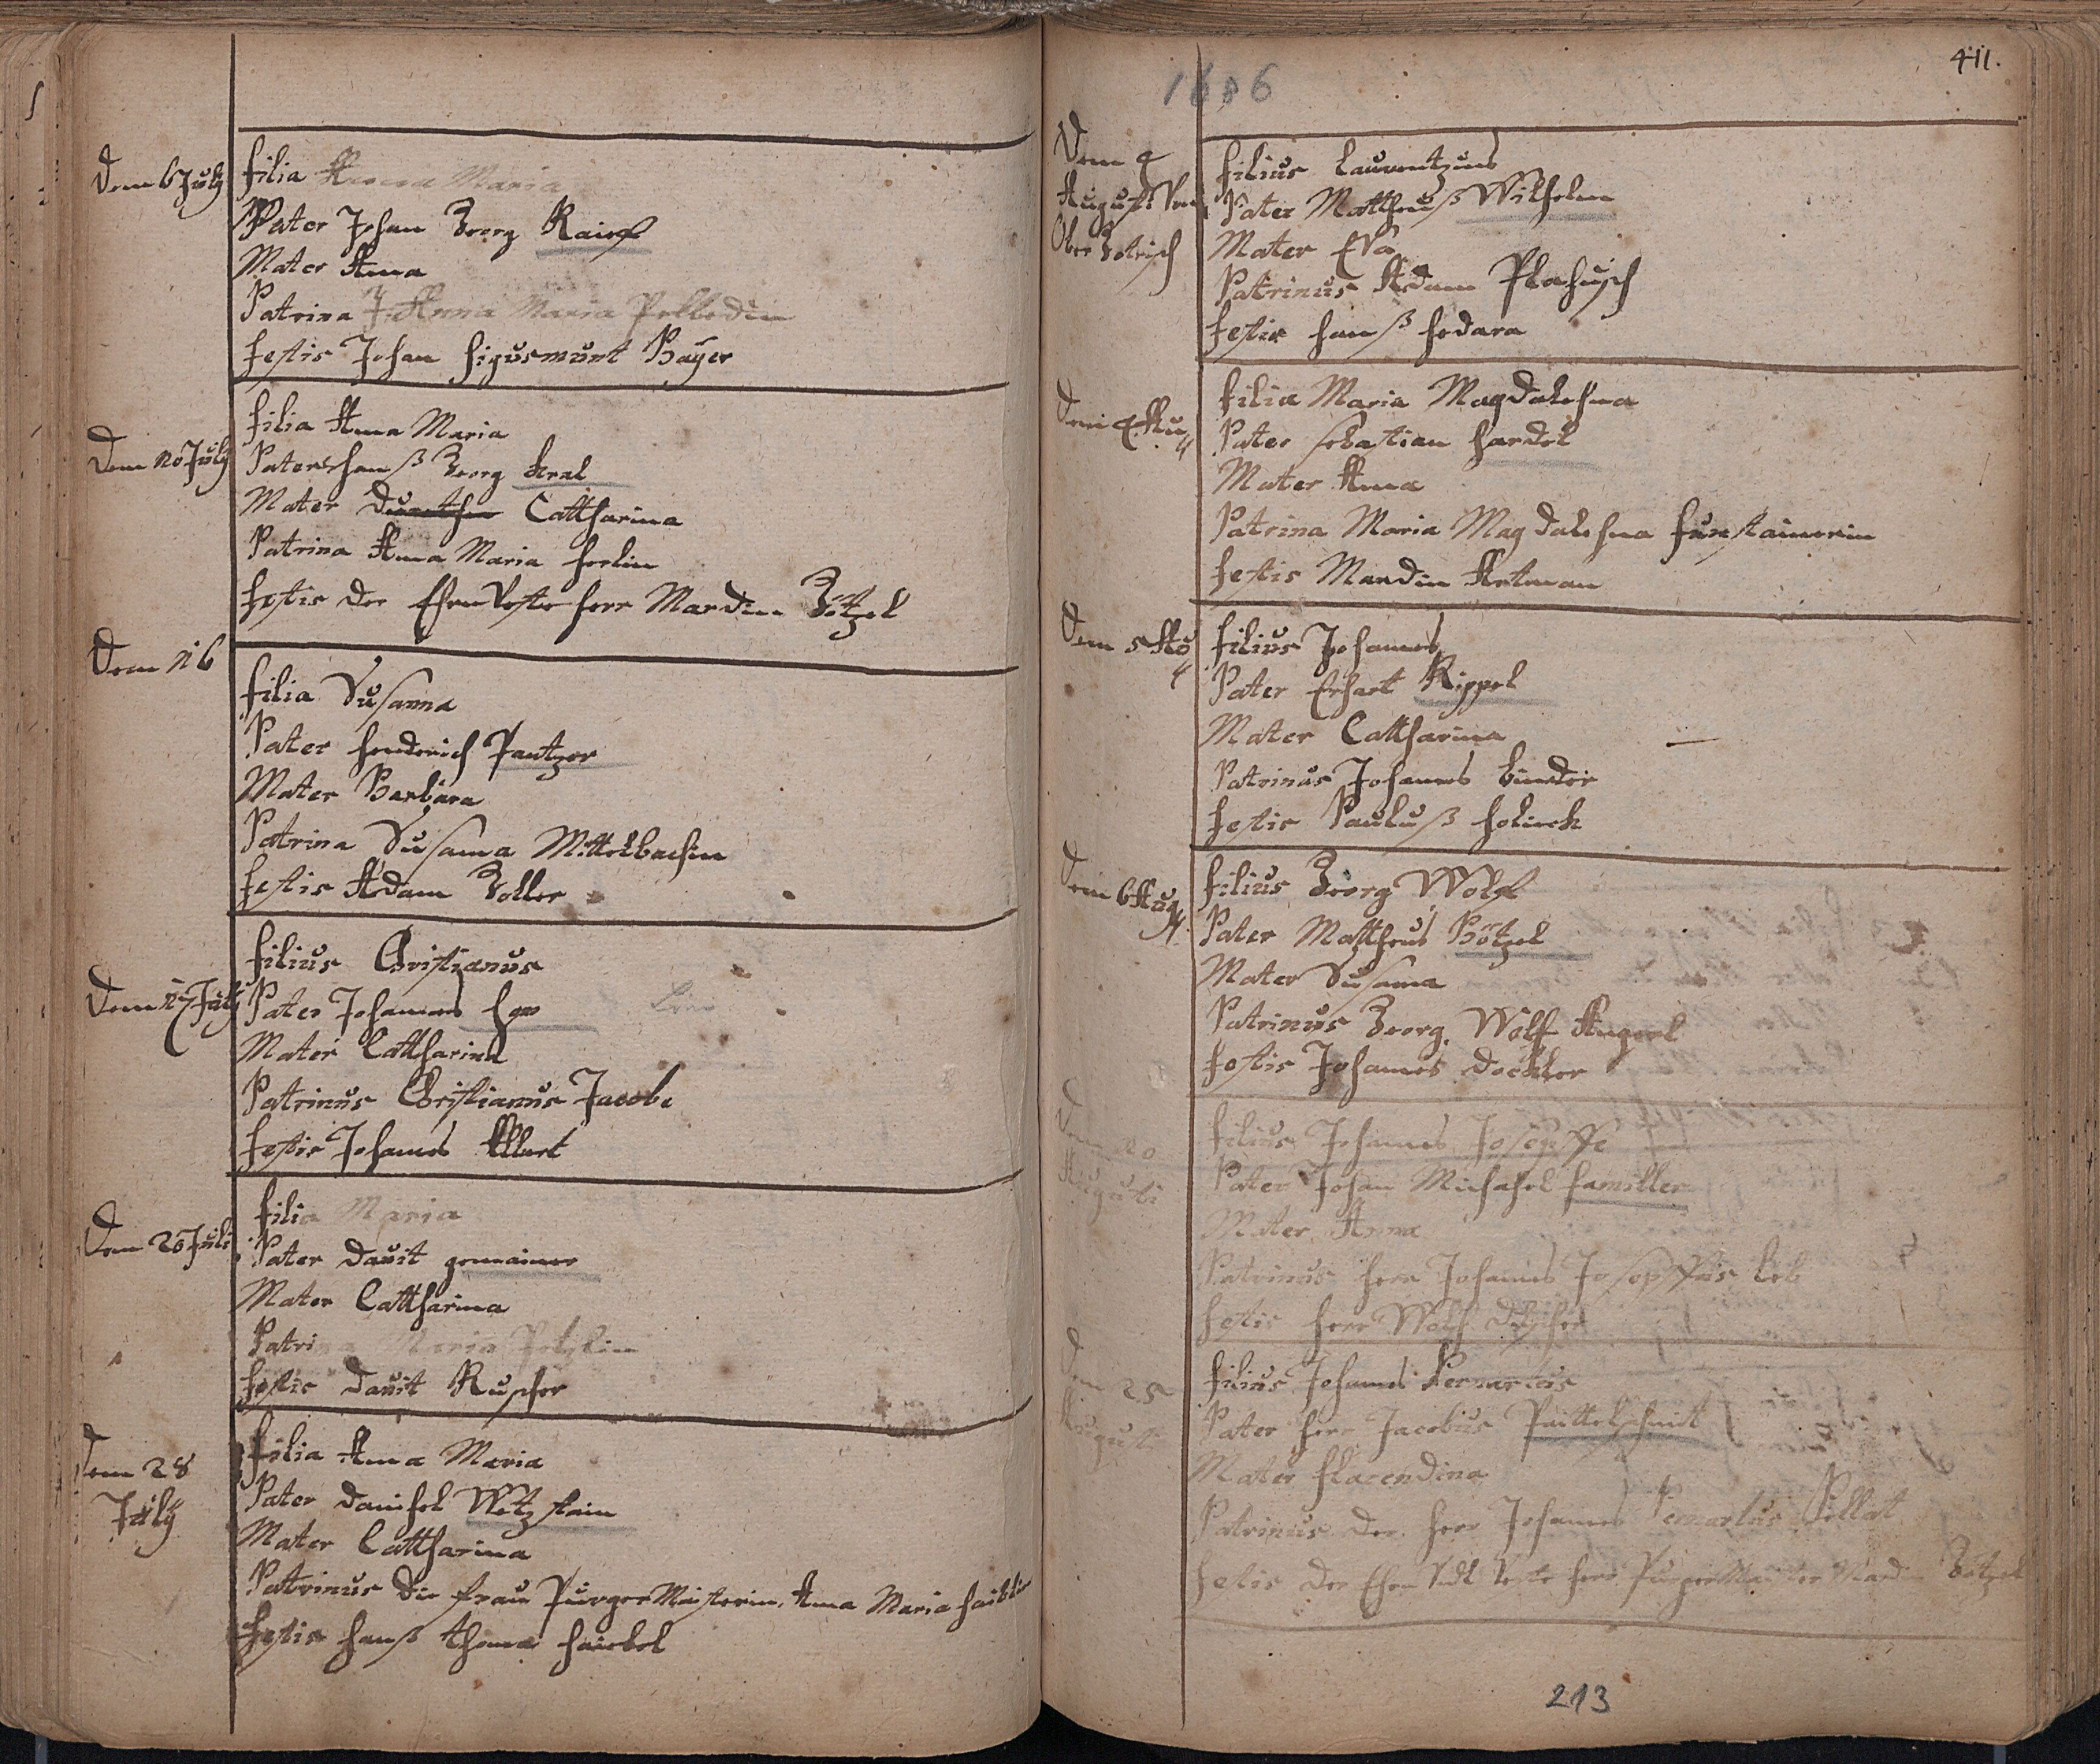 Dem 6 July
filia Anna Maria
Pater Johan Georg Raisch
Mater Anna
Patrina J. Anna Maria Pelledin
testis Johan Sigusmunt Bayer
Dem 10 July
filia Anna Maria
Pater Hanß Georg Kral
Mater Catharina
Patrina Anna Maria
testis der Ehrnveste Herr Mardin Götzel
Dem 16
filia Susanna
Pater Henderich Pantzer
Mater Barbara
Patrina Susanna Mittelbachin
testis Adam Zoller
Dem 17 July
filius Christianus
Pater Johannes
Mater Catharina
Patrinus Christianus Jacobe
testis Johannes
Dem 20 July
filia Maria
Pater Davit gemainer
Mater Catharina
Patrina Maria
testis Davit Rupfer
Dem 28 July
filia Anna Maria
Pater Daniehel Wetzstain
Mater Catharina
Patrinus Die frau PurgerMaisterin Anna Maria
testis Hanß thoma Haickel
411.
1686
Dem 4 August Von Ober
filius Laurentzius
Pater Mattheuß Wilhelm
Mater Eva
Patrinus Adam Plahusch
testis Hanß Hodara
Dem 4 Au
filia Maria Magdalehna
Pater Sebastian Handel
Mater Anna
Patrina Maria Magdalehna
testis Mardin Artman
Dem 5 Au
filius Johannes
Pater Erhart Rippel
Mater Catharina
Patrinus Johannes binder
testis Pauluß
Dem 6 Aug
filius Georg Wolf
Pater Mattheus Götzel
Mater Susanna
Patrinus Georg Wolf Angerl
testis Johannes Dockler
Dem 20 Augusti
filius Johannes Joseppe
Pater Johan Michahel Hamiller
Mater Anna
Patrinus Herr Johannes
testis Herr Wolf
Dem 25 August
filius Johannes
Pater Herr Jacobus
Mater
Patrinus Der Herr Johannes
testis Der Herr PurgerMaister Mardin Götzel
213